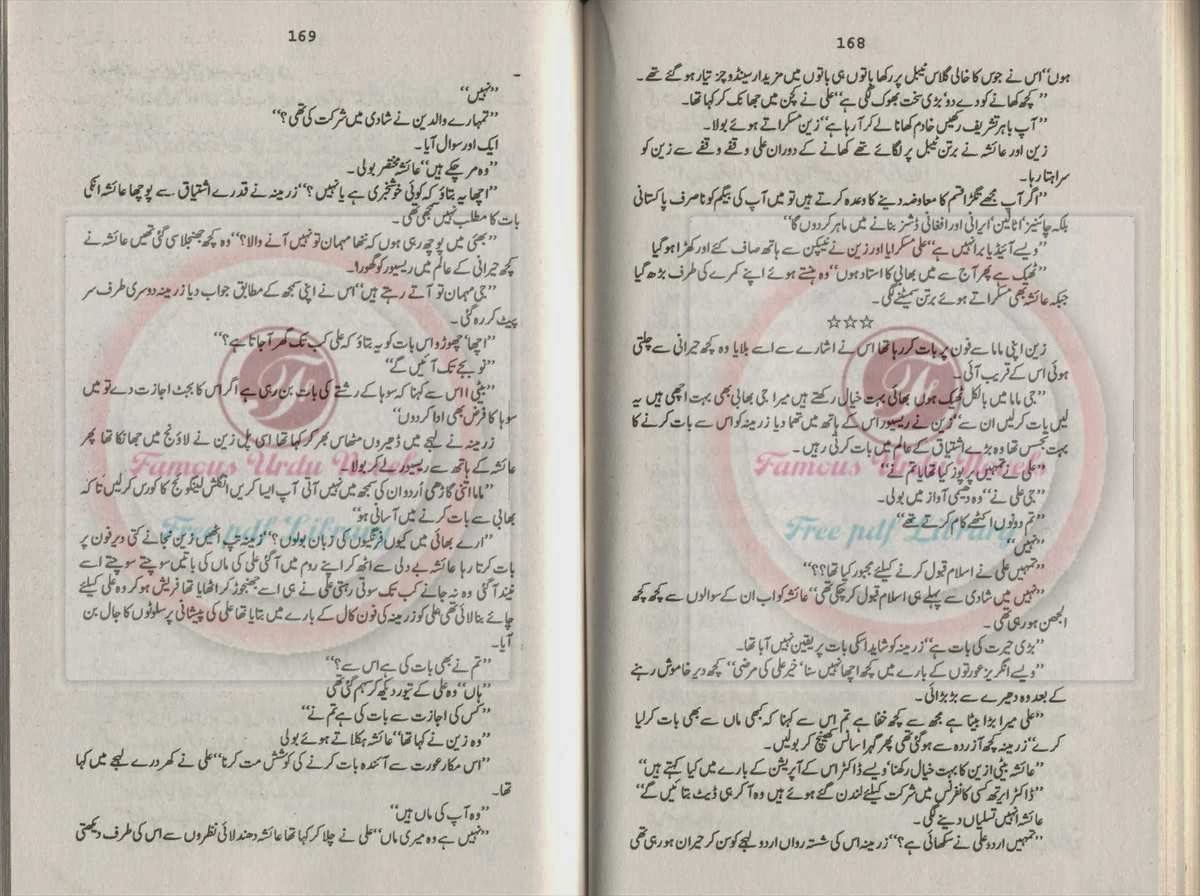 168
ہوں‘‘اس نے جوس کا خالی گلاس ٹیبل پر رکھا باتوں ہی باتوں میں مزیدار سینڈوچز تیار ہو گئے تھے۔
’’کچھ کھانے کو دے دو‘ بڑی سخت بھوک لگی ہے‘‘علی نے کچن میں جھانک کر کہا تھا۔
’’آپ باہر تشریف رکھیں خادم کھانا لے کر آ رہا ہے‘‘زین مسکراتے ہوئے بولا۔
زین اور عائشہ نے برتن ٹیبل پر لگائے تھے کھانے کے دوران علی وقفے وقفے سے زین کو
سراہتا رہا۔
’’اگر آپ مجھے تگڑا قسم کا معاوضہ دینے کا وعدہ کرتے ہیں تو میں آپ کی بیگم کو ناصرف پاکستانی
بلکہ چائنیز‘ اٹالین‘ ایرانی اور افغانی ڈشز بنانے میں ماہر کردوں گا‘‘
’’ویسے آئیڈیا برا نہیں ہے‘‘علی مسکرایا اور زین نے نیپکن سے ہاتھ صاف کئے اور کھڑا ہو گیا
’’ٹھیک ہے پھر آج سے میں بھابی کا استاد ہوں‘‘وہ ہنستے ہوئے اپنے کمرے کی طرف بڑھ گیا
جبکہ عائشہ بھی مسکراتے ہوئے برتن سمیٹنے لگی۔
☆☆☆
زین اپنی ماما سے فون پر بات کررہا تھا اس نے اشارے سے اسے بلایا وہ کچھ حیرانی سے چلتی
ہوئی اس کے قریب آئی۔
’’جی ماما میں بالکل ٹھیک ہوں بھائی بہت خیال رکھتے ہیں میرا جی بھابی بھی بہت اچھی ہیں یہ
لیں بات کرلیں ان سے‘‘زین نے ریسیور اس کے ہاتھ میں تھما دیا زرمینہ کو اس سے بات کرنے کا
بہت تجسس تھا وہ بڑے اشتیاق کے عالم میں بات کرتی رہیں۔
’’علی نے تمہیں پرپوز کیا تھا یا تم نے‘‘
’’جی علی نے‘‘وہ دھیمی آواز میں بولی۔
’’تم دونوں اکٹھے کام کرتے تھے‘‘
’’نہیں‘‘
’’تمہیں علی نے اسلام قبول کرنے کیلئے مجبور کیا تھا؟؟‘‘
’’نہیں میں شادی سے پہلے ہی اسلام قبول کر چکی تھی‘‘عائشہ کو اب ان کے سوالوں سے کچھ کچھ
الجھن ہو رہی تھی۔
’’بڑی حیرت کی بات ہے‘‘زرمینہ کو شاید اسکی بات پر یقین نہیں آیا تھا۔
’’ویسے انگریز عورتوں کے بارے میں کچھ اچھا نہیں سنا‘ خیر علی کی مرضی‘‘کچھ دیر خاموش رہنے
کے بعد وہ دھیرے سے بڑبڑائی۔
’’علی میرا بڑا بیٹا ہے مجھ سے کچھ خفا ہے تم اس سے کہنا کہ کبھی ماں سے بھی بات کرلیا
کرے‘‘زرمینہ کچھ آزردہ سے ہو گئی تھی پھر گہرا سانس کھینچ کر بولیں۔
’’عائشہ بیٹی! زین کا بہت خیال رکھنا‘ ویسے ڈاکٹر اس کے آپریشن کے بارے میں کیا کہتے ہیں‘‘
’’ڈاکٹر ایرتھ کسی کانفرنس میں شرکت کیلئے لندن گئے ہوئے ہیں وہ آ کر ہی ڈیٹ بتائیں گے‘‘
عائشہ انہیں تسلیاں دینے لگی۔
’’تمہیں اردو علی نے سکھائی ہے؟‘‘زرمینہ اس کی شستہ رواں اردو لہجے کو سن کر حیران ہو رہی تھی
169
۔
’’نہیں‘‘
’’تمہارے والدین نے شادی میں شرکت کی تھی؟‘‘
ایک اور سوال آیا۔
’’وہ مر چکے ہیں‘‘عائشہ مختصر بولی۔
’’اچھا یہ بتاؤ کہ کوئی خوشخبری ہے یا نہیں؟‘‘زرمینہ نے قدرے اشتیاق سے پوچھا عائشہ انکی
بات کا مطلب نہیں سمجھی تھی۔
’’بھئی میں پوچھ رہی ہوں کہ ننھا مہمان تو نہیں آنے والا؟‘‘وہ کچھ جھنجلا سی گئی تھیں عائشہ نے
کچھ حیرانی کے عالم میں ریسیور کو گھورا۔
’’جی مہمان تو آتے رہتے ہیں‘‘اس نے اپنی سمجھ کے مطابق جواب دیا زرمینہ دوسری طرف سر
پیٹ کر رہ گئی۔
’’اچھا‘ چھوڑو اس بات کو یہ بتاؤ کہ علی کب تک گھر آ جاتا ہے؟‘‘
’’نو بجے تک آئیں گے‘‘
’’بیٹی! اس سے کہنا کہ سوہا کے رشتے کی بات بن رہی ہے اگر اس کا بجٹ اجازت دے تو میں
سوہا کا فرض بھی ادا کردوں‘‘
زرمینہ نے لہجے میں ڈھیروں مٹھاس بھر کر کہا تھا اسی پل زین نے لاؤنج میں جھانکا تھا پھر
عائشہ کے ہاتھ سے ریسیور لے کر بولا۔
’’ماما اتنی گاڑھی اُردو ان کی سمجھ میں نہیں آتی آپ ایسا کریں انگلش لینگوئج کا کورس کرلیں تاکہ
بھابی سے بات کرنے میں آسانی ہو‘‘
’’ارے بھائی میں کیوں فرنگیوں کی زبان بولوں؟‘‘زرمینہ تپ اٹھیں زین نجانے کتنی دیر فون پر
بات کرتا رہا عائشہ بے دلی سے اٹھ کر اپنے روم میں آ گئی علی کی ماں کی باتیں سوچتے سوچتے اسے
نیند آ گئی وہ نہ جانے کب تک سوتی رہتی علی نے ہی اسے جھنجوڑ کر اٹھایا تھا فریش ہو کر وہ علی کیلئے
چائے بنا لائی تھی علی کو زرمینہ کی فون کال کے بارے میں بتایا تھا علی کی پیشانی پر سلوٹوں کا جال بن
آیا۔
’’تم نے بھی بات کی ہے اس سے؟‘‘
’’ہاں‘‘وہ علی کے تیور دیکھ کر سہم گئی تھی
’’کس کی اجازت سے بات کی ہے تم نے‘‘
’’وہ زین نے کہا تھا‘‘عائشہ ہکلاتے ہوئے بولی
’’اس مکار عورت سے آئندہ بات کرنے کی کوشش مت کرنا‘‘علی نے کھردرے لہجے میں کہا
تھا۔
’’وہ آپ کی ماں ہیں‘‘
’’نہیں ہے وہ میری ماں‘‘علی نے چلا کر کہا تھا عائشہ دھندلائی نظروں سے اس کی طرف دیکھتی
Famous Urdu Novels
Free pdf Library
Famous Urdu Novels
Free pdf Library